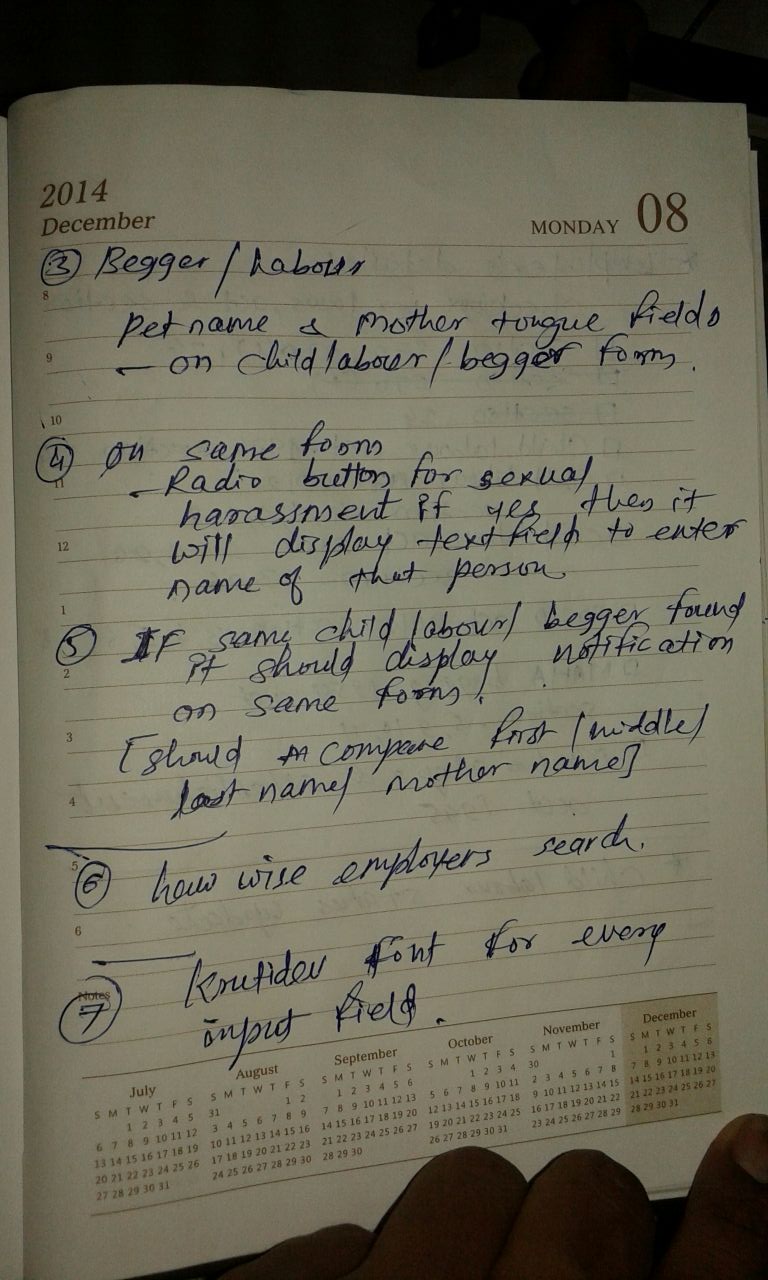 2014
December
MONDAY 08
③ Begger / Labour
8
Pet name & Mother tongue fields
9
— on child labour / begger form.
10
④ On same form
11
- Radio button for sexual
harassment if yes then it
12
will display textfield to enter
name of that person
1
⑤ IF same child labour/ begger found
2
it should display notification
on same form.
3
[should compare first /middle/
4
last name/ mother name]
5
⑥ law wise employers search.
6
Notes
⑦ Krutidev font for every
input field.
July
S M T W T F S
1 2 3 4 5
6 7 8 9 10 11 12
13 14 15 16 17 18 19
20 21 22 23 24 25 26
27 28 29 30 31
August
S M T W T F S
31 1 2
3 4 5 6 7 8 9
10 11 12 13 14 15 16
17 18 19 20 21 22 23
24 25 26 27 28 29 30
September
S M T W T F S
1 2 3 4 5 6
7 8 9 10 11 12 13
14 15 16 17 18 19 20
21 22 23 24 25 26 27
28 29 30
October
S M T W T F S
1 2 3 4
5 6 7 8 9 10 11
12 13 14 15 16 17 18
19 20 21 22 23 24 25
26 27 28 29 30 31
November
S M T W T F S
30 1
2 3 4 5 6 7 8
9 10 11 12 13 14 15
16 17 18 19 20 21 22
23 24 25 26 27 28 29
December
S M T W T F S
1 2 3 4 5 6
7 8 9 10 11 12 13
14 15 16 17 18 19 20
21 22 23 24 25 26 27
28 29 30 31